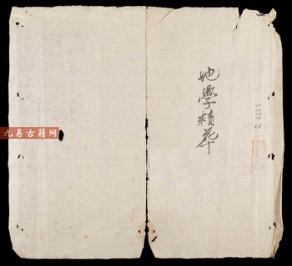 地學精華
九易古籍网